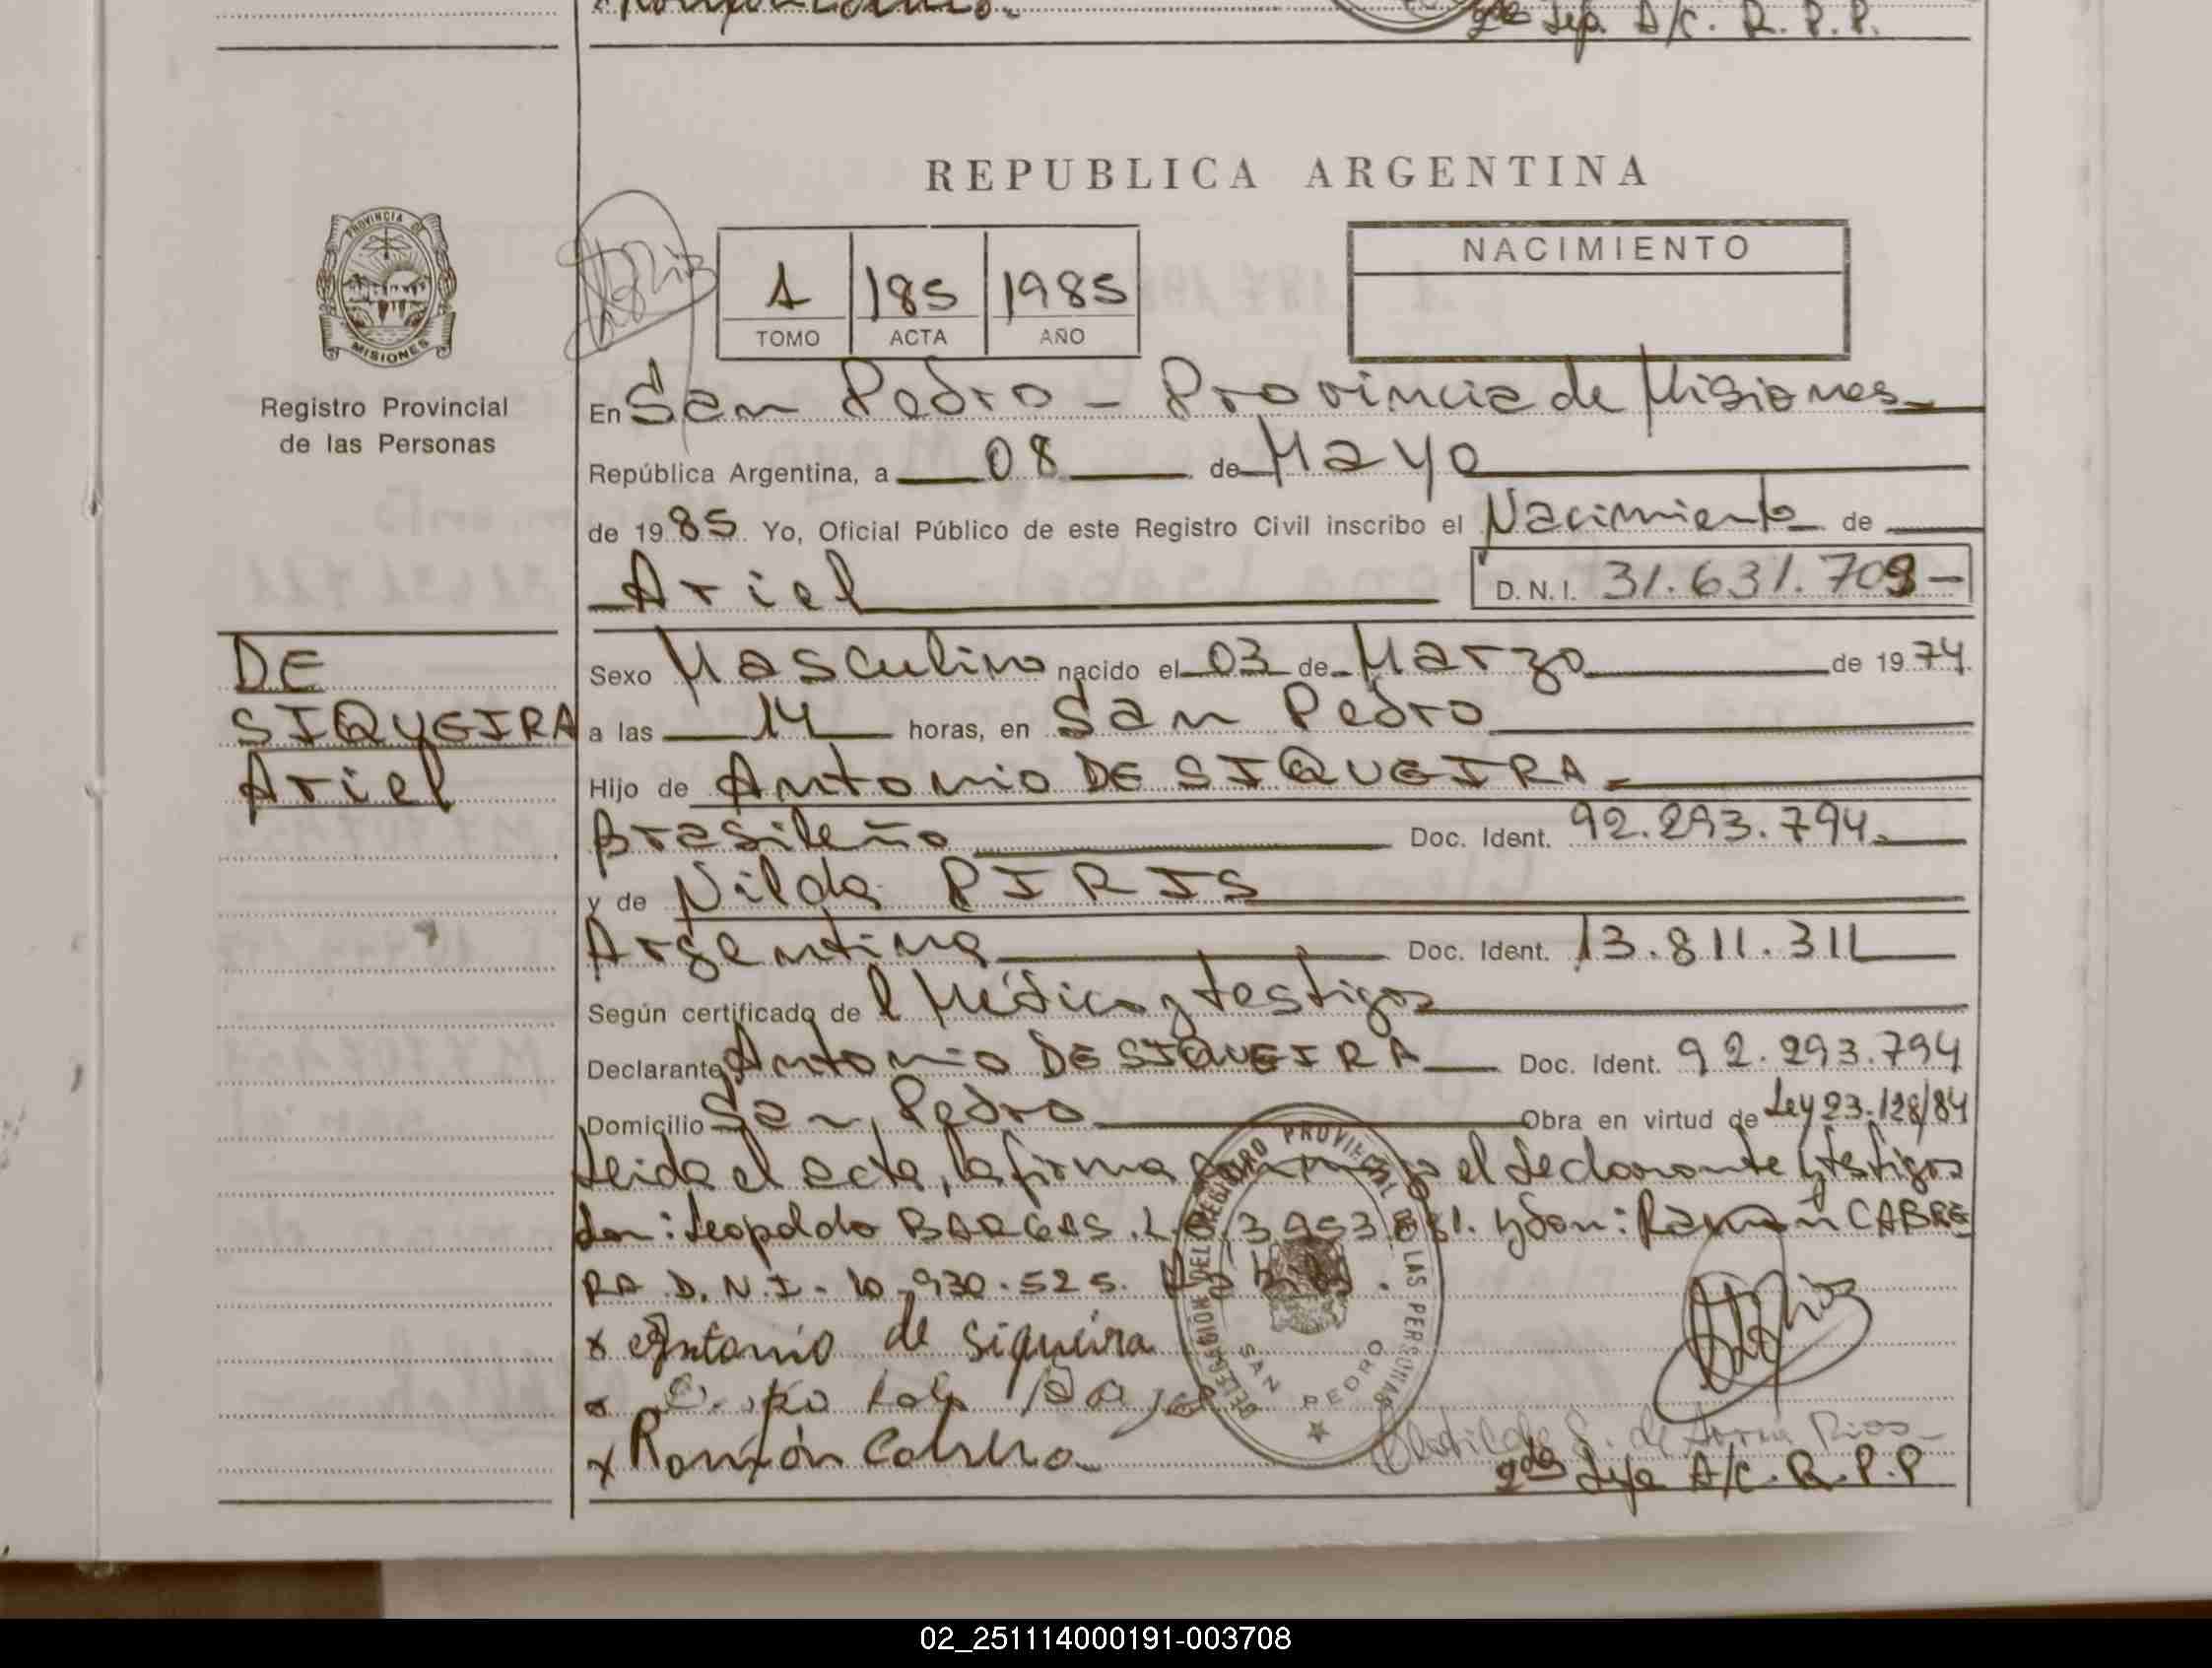 2da Jefa A/C. R. P. P.
REPUBLICA ARGENTINA
PROVINCIA DE
MISIONES
Registro Provincial
de las Personas
1 185 1985
TOMO ACTA AÑO
NACIMIENTO
En San Pedro - Provincia de Misiones
República Argentina, a 08 de Mayo
de 1985 Yo, Oficial Público de este Registro Civil inscribo el Nacimiento de
Ariel D. N. I. 31.631.709-
DE
SIQUEIRA
Ariel
Sexo Masculino nacido el 03 de Marzo de 1974.
a las 14 horas, en San Pedro
Hijo de Antonio DE SIQUEIRA
Brasileño Doc. Ident. 92.293.794.
y de Nilda PIRIS
Argentina Doc. Ident. 13.811.311
Según certificado de l Médico y testigos
Declarante Antonio DE SIQUEIRA Doc. Ident. 92.293.794
Domicilio San Pedro Obra en virtud de Ley 23.128/84
Leida el acta, la firma el declarante y testigos
don: Leopoldo y don: Ramón CABRE
RA D.N.I. 10.930.525.
x Antonio de Siqueira
x Ramón Cabrera
DELEGACIÓN DEL REGISTRO PROVINCIAL DE LAS PERSONAS
SAN PEDRO
Rios
2da Jefa A/C. R. P. P
02_251114000191-003708